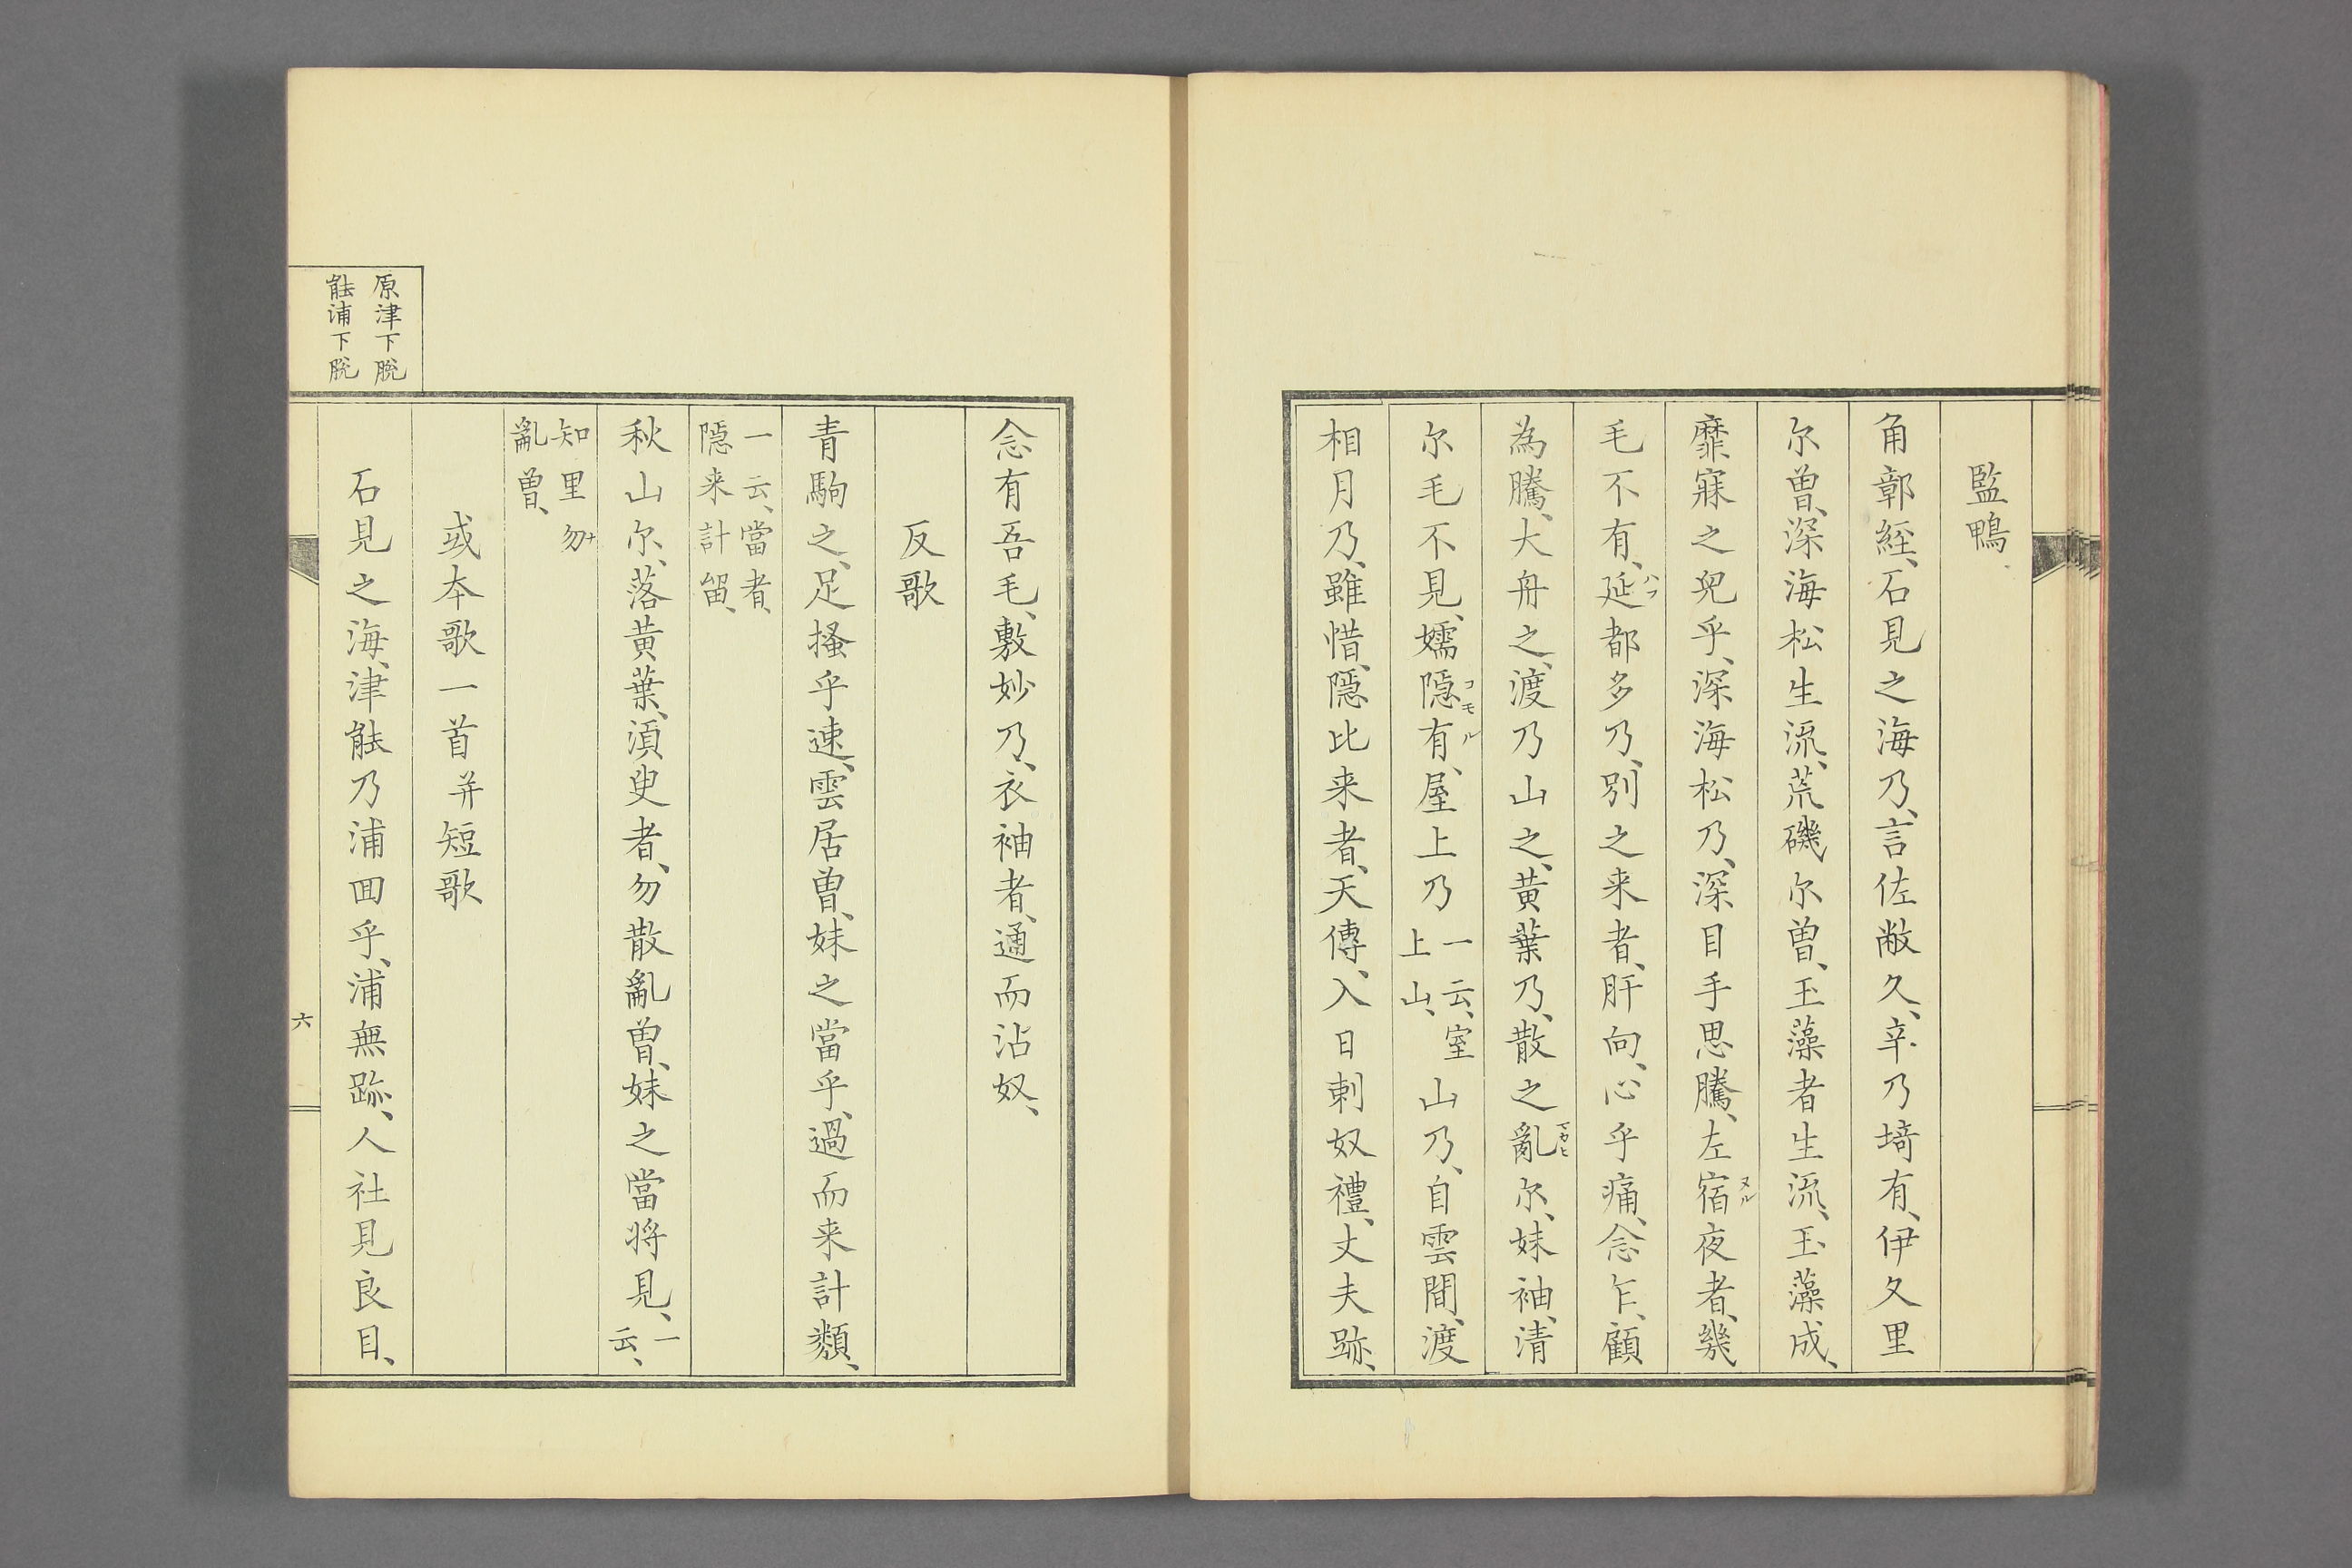 監鴨
角鄣経、石見之海乃、言佐敝久、辛乃埼有、伊久里
尓曽、深海松生流、荒礒尓曽、玉藻者生流、玉藻成、
靡寐之兒乎、深海松乃、深目手思騰、左宿夜者、幾
ヌル
毛不有、延都多乃、別之来者、肝向、心乎痛、念乍、顧
ハフ
為騰、大舟之、渡乃山之、黄葉乃、散之亂尓、妹袖、清
マカヒ
尓毛不見、嬬隠有、屋上乃一云、室上山、山乃、自雲間、渡
コモル
相月乃、雖惜、隠比来者、天傳、入日刺奴禮、丈夫跡、
念有吾毛、敷妙乃、衣袖者、通而沾奴、
反歌
青駒之、足搔乎速、雲居曽、妹之當乎、過而来計類、
一云、當者、
隠来計留、
秋山尓、落黄葉、須臾者、勿散亂曽、妹之當将見、一云、
知里勿
ナ
亂曽、
或本歌一首并短歌
石見之海、津能乃浦回乎、浦無跡、人社見良目、
原津下脱
能浦下脱
六